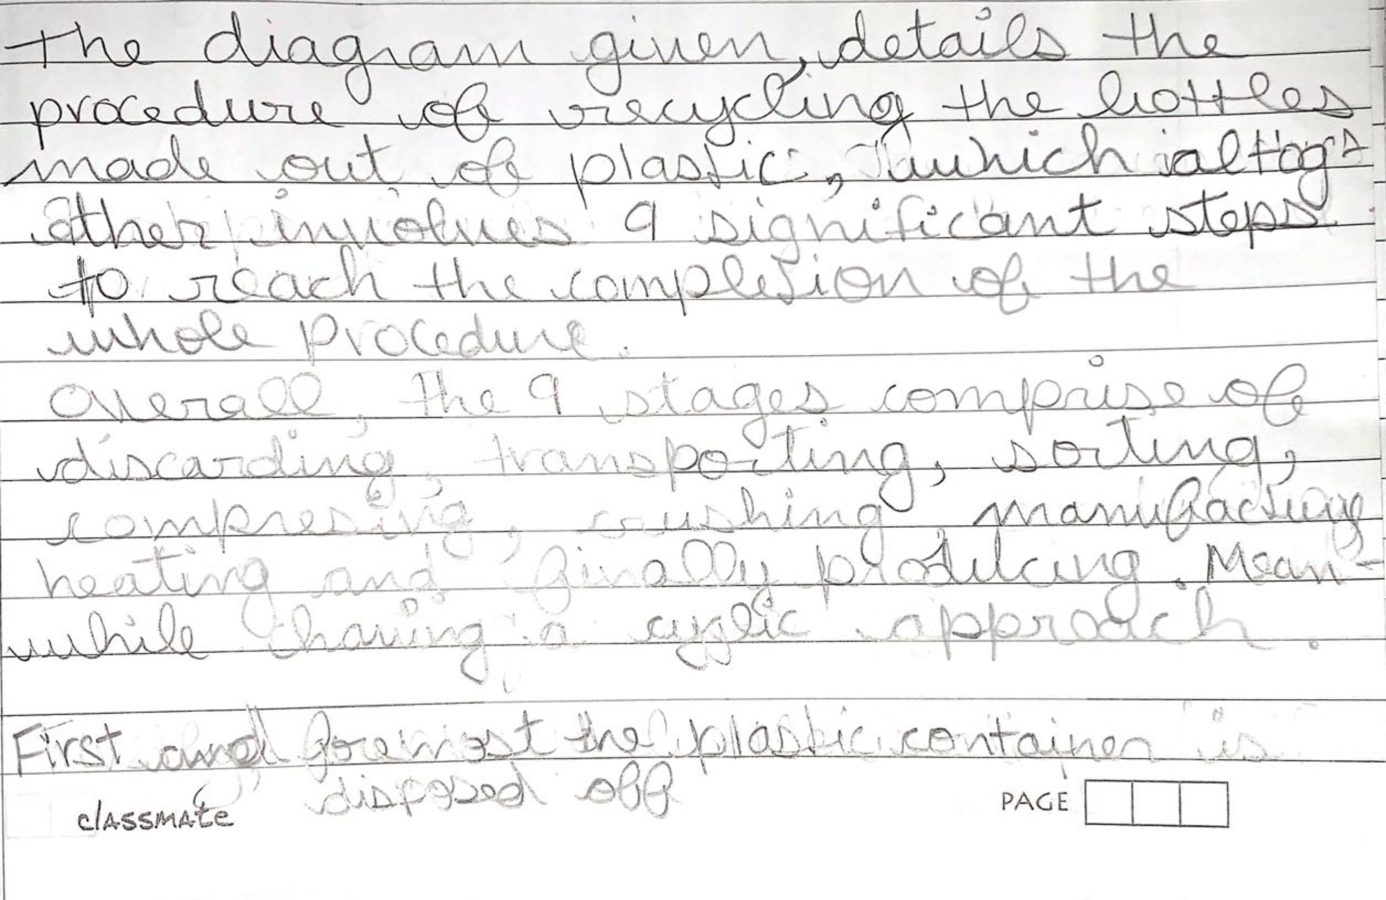 the diagram given, details the
procedure of recycling the bottles
made out of plastic, which altog-
ather involves 9 significant steps
to reach the completion of the
whole procedure.
Overall, the 9 stages comprise of
discarding, transporting, sorting,
compresing, crushing, manufacturing
heating and finally producing. Mean-
while having a cyclic approach.
First and foremost the plastic container is
disposed off
classmate
PAGE